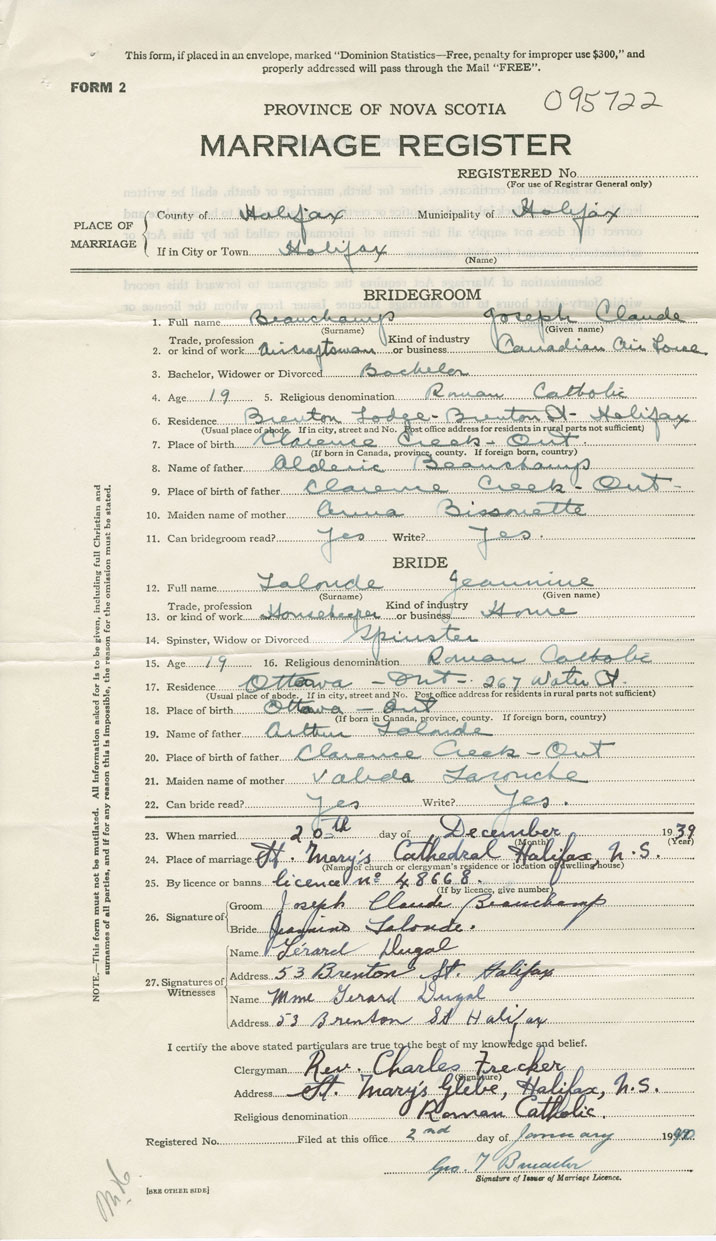 This form, if placed in an envelope, marked "Dominion Statistics—Free, penalty for improper use $300," and
properly addressed will pass through the Mail "FREE".
FORM 2
095722
PROVINCE OF NOVA SCOTIA
MARRIAGE REGISTER
REGISTERED No.
(For use of Registrar General only)
PLACE OF MARRIAGE
County of Halifax Municipality of Halifax
If in City or Town Halifax
(Name)
BRIDEGROOM
1. Full name Beauchamp Joseph Claude
(Surname) (Given name)
2. Trade, profession or kind of work Aircraftsman Kind of industry or business Canadian Air Force
3. Bachelor, Widower or Divorced Bachelor
4. Age 19 5. Religious denomination Roman Catholic
6. Residence Brenton Lodge - Brenton St - Halifax
(Usual place of abode. If in city, street and No. Post office address for residents in rural parts not sufficient)
7. Place of birth Clarence Creek - Ont
(If born in Canada, province, county. If foreign born, country)
8. Name of father Alderic Beauchamp
9. Place of birth of father Clarence Creek - Ont -
10. Maiden name of mother Anna Bissonette
11. Can bridegroom read? Yes Write? Yes.
BRIDE
12. Full name Lalonde Jeannine
(Surname) (Given name)
13. Trade, profession or kind of work Housekeeper Kind of industry or business Home
14. Spinster, Widow or Divorced Spinster
15. Age 19 16. Religious denomination Roman Catholic
17. Residence Ottawa - Ont - 267 Water St.
(Usual place of abode. If in city, street and No. Post office address for residents in rural parts not sufficient)
18. Place of birth Ottawa - Ont
(If born in Canada, province, county. If foreign born, country)
19. Name of father Arthur Lalonde
20. Place of birth of father Clarence Creek - Ont
21. Maiden name of mother Valida Larouche
22. Can bride read? Yes Write? Yes.
23. When married 20th day of December 1939
(Month) (Year)
24. Place of marriage St. Mary's Cathedral Halifax, N.S.
(Name of church or clergyman's residence or location of dwelling house)
25. By licence or banns licence no 48668.
(If by licence, give number)
26. Signature of
Groom Joseph Claude Beauchamp
Bride Jeannine Lalonde.
27. Signatures of Witnesses
Name Gérard Dugal
Address 53 Brenton St. Halifax
Name Mme Gerard Dugal
Address 53 Brenton St Halifax
I certify the above stated particulars are true to the best of my knowledge and belief.
Clergyman Rev. Charles Frecker
(Signature)
Address St. Mary's Glebe, Halifax, N.S.
Religious denomination Roman Catholic.
Registered No. Filed at this office 2nd day of January 1940
Geo. T
Signature of Issuer of Marriage Licence.
[SEE OTHER SIDE]
NOTE.—This form must not be mutilated. All information asked for is to be given, including full Christian and
surnames of all parties, and if for any reason this is impossible, the reason for the omission must be stated.